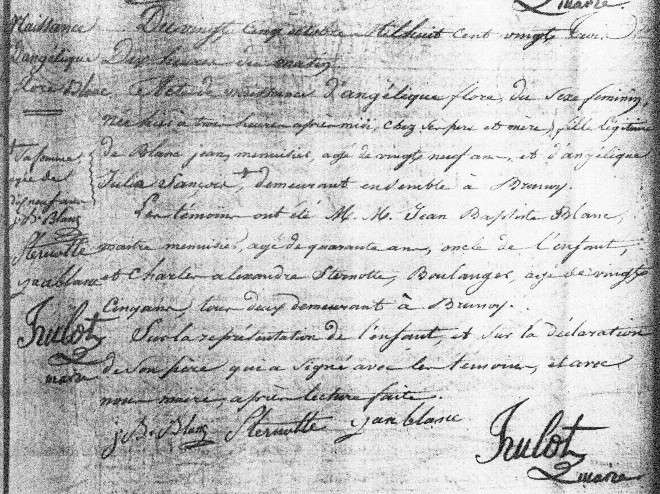 maire
Naissance
D'angélique
flore Blanc
Du vingt cinq octobre Mil huit cent vingt trois
Dix heures du matin
Acte de naissance d'angélique flore, du Sexe féminin,
née hier à trois heures après midi, chez Ses père et mère, fille légitime
de Blanc jean, menuisier, agé de vingt neuf ans, et d'angélique
Julia, demeurant ensemble à Brunoy.
Les témoins ont été M. M. Jean Baptiste Blanc,
maître menuisier, agé de quarante ans, oncle de l'enfant,
et Charles alexandre Sternotte, Boulanger, agé de vingt
Cinq ans, tous deux demeurant à Brunoy.
Sur la représentation de l'enfant, et sur la déclaration
de Son père qui a Signé avec les témoins, et avec
nous maire, après lecture faite.
Sa femme
agée de
dix neuf ans
j. B. Blanc
Sternotte
jean blanc
Hulot
maire
j. B. Blanc Sternotte jean blanc
Hulot
maire